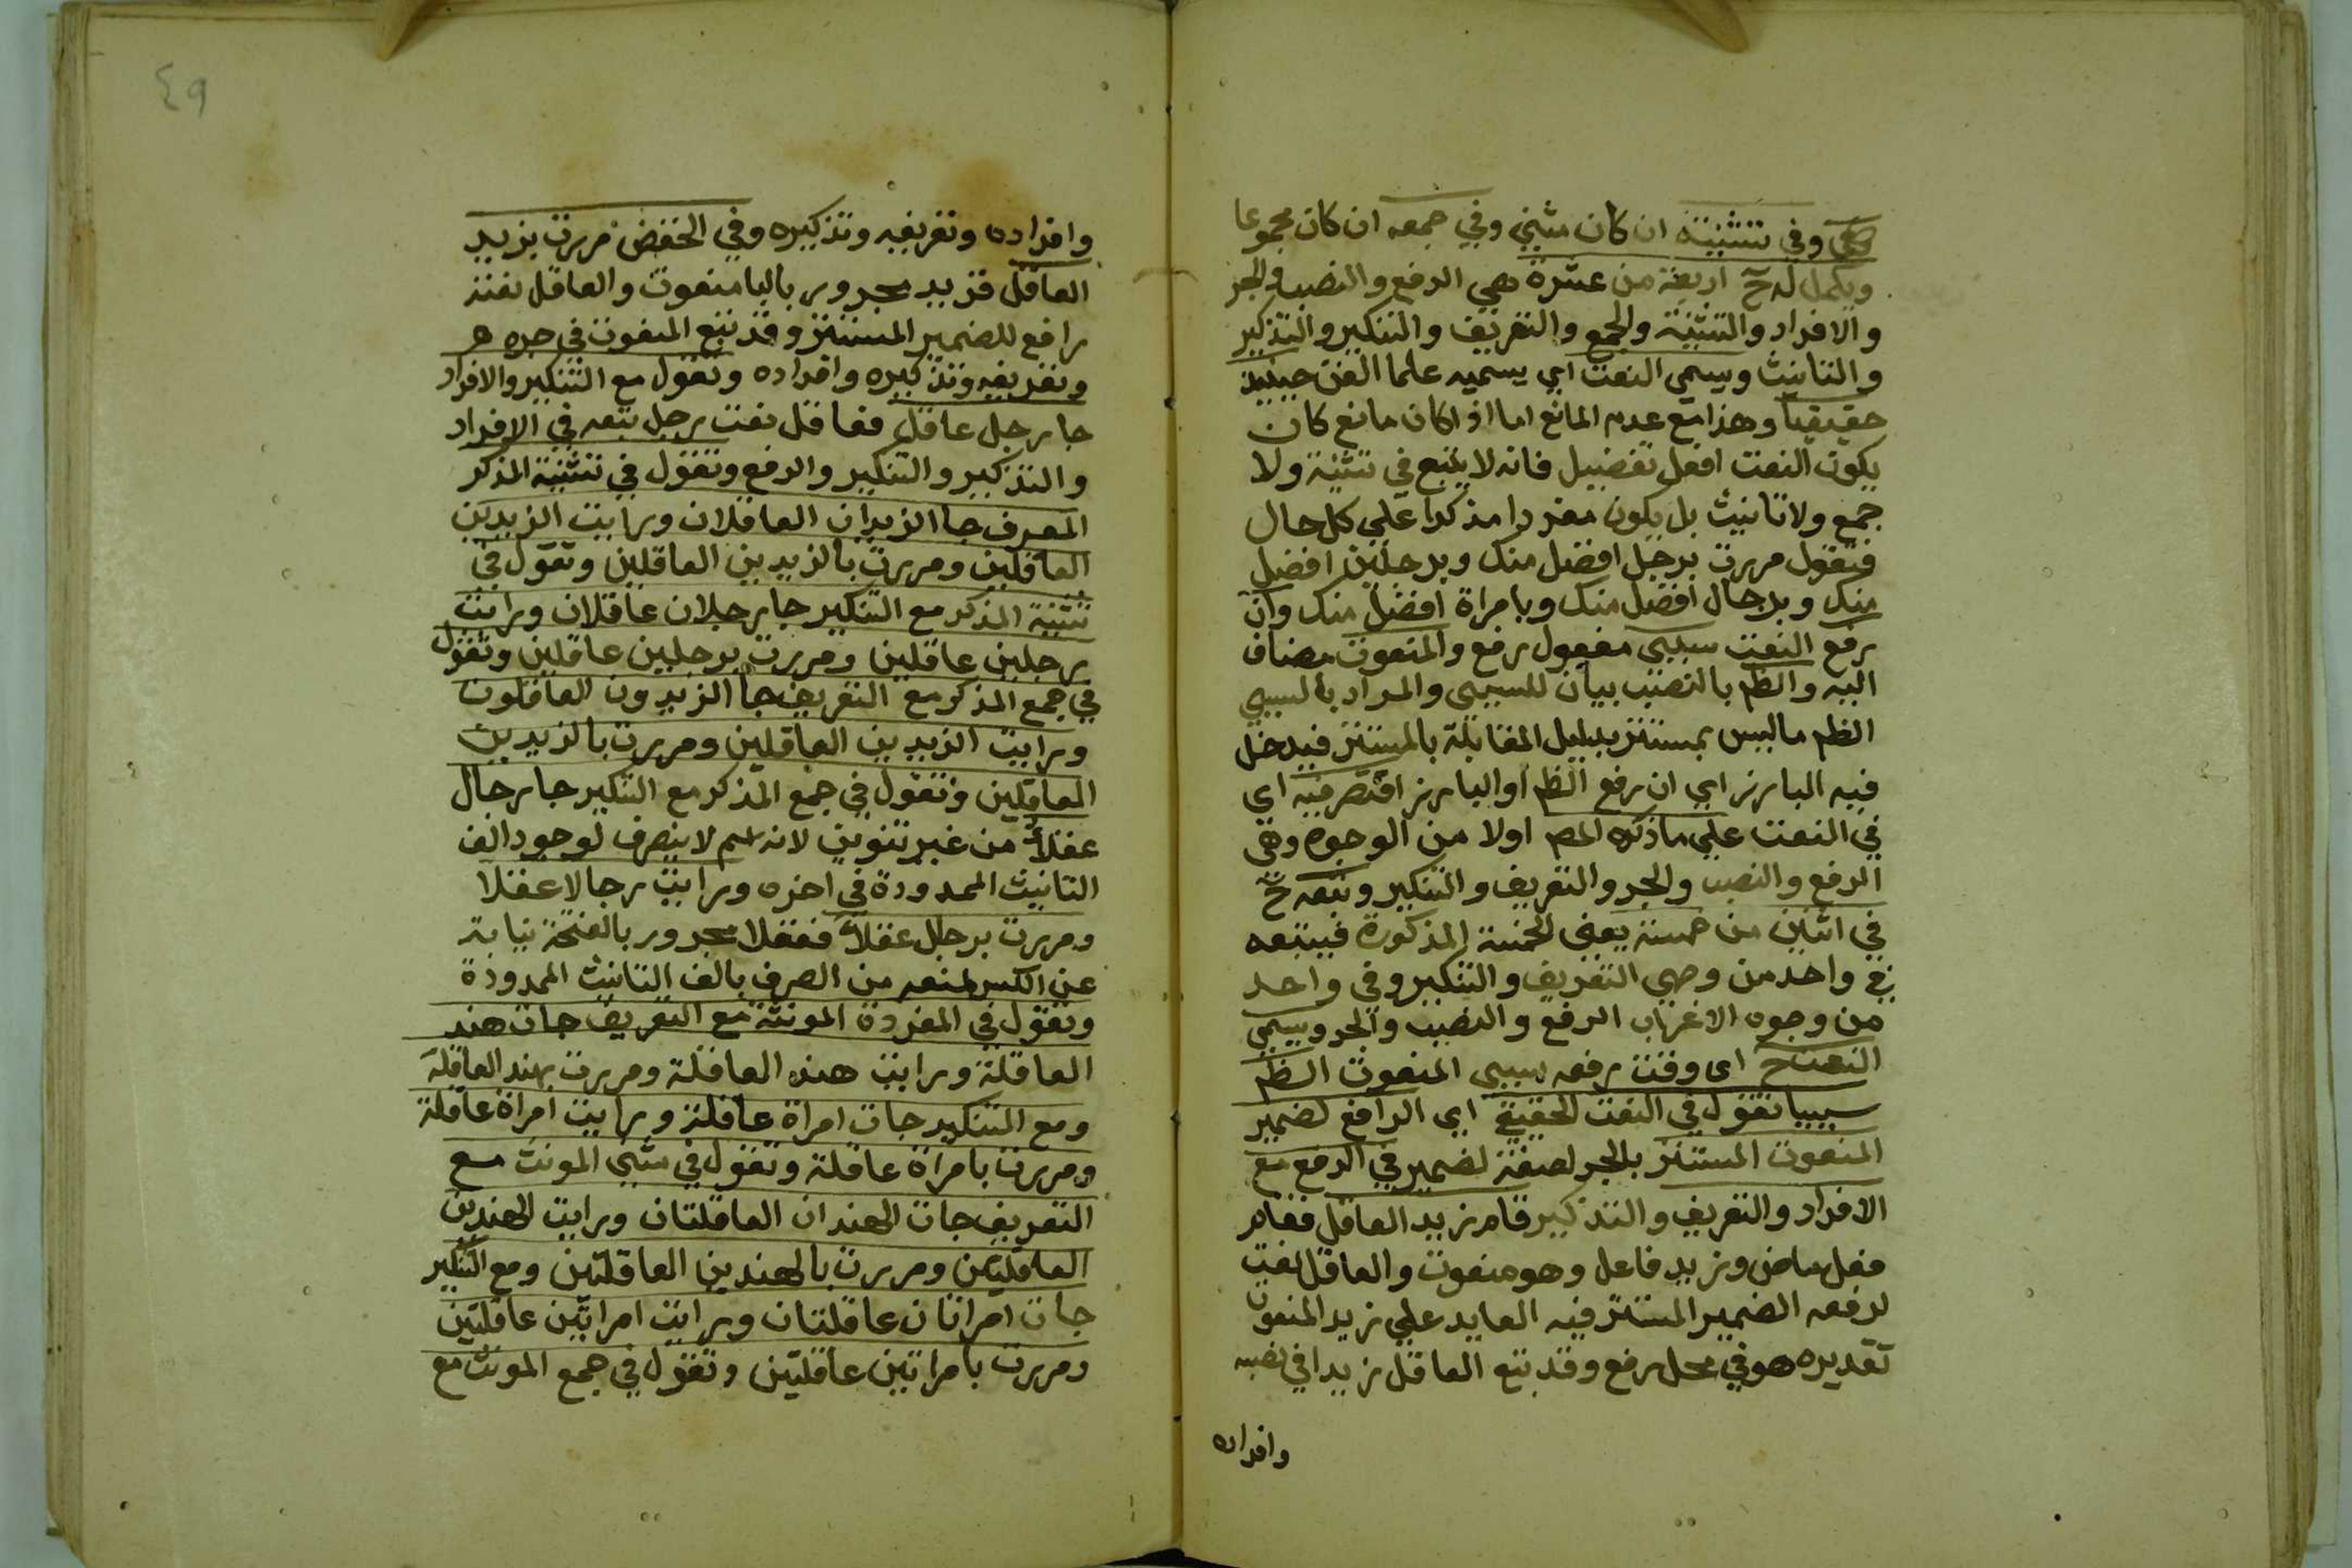 وفي تثنيته ان كان مثني وفي جمعه ان كان مجموعا
ويكمل له ح اربعة من عشرة هي الرفع والنصب والجر
والافراد والتثنية والجمع والتعريف والتنكير والتذكير
والتانيث ويسمي النعت اي يسميه علما الفن حينيذ
حقيقيا وهذا مع عدم المانع اما اذا كان مانع كان
يكون النعت افعل تفضيل فانه لا يتبع في تثنية ولا
جمع ولا تانيث بل يكون مفردا مذكرا علي كل حال
فتقول مررت برجل افضل منك وبرجلين افضل
منك وبرجال افضل منك وبامراة افضل منك وان
رفع النعت سببي مفعول رفع والمنعوت مضاف
اليه والظم بالنصب بيان للسببى والمراد بالسببي
الظم ماليس بمستتر بدليل المقابلة بالمستتر فيدخل
فيه البارز اي ان رفع الظم او البارز اقتصر فيه اي
في النعت علي ما ذكره المص اولا من الوجوه وهي
الرفع والنصب والجر والتعريف والتنكير وتبعه ح
في اثنين من خمسة يعني الخمسة المذكورة فيتبعه
في واحد من وجهي التعريف والتنكير وفي واحد
من وجوه الاعراب الرفع والنصب والجر ويسمي
النعت ح اى وقت رفعه سببى المنعوت الظم
سببيا تقول في النعت الحقيقي اي الرافع لضمير
المنعوت المستتر بالجر لصفة لضمير في الرفع مع
الافراد والتعريف والتذكير قام زيد العاقل فقام
فعل ماض وزيد فاعل وهو منعوت والعاقل نعت
لرفعه الضمير المستتر فيه العايد علي زيد المنعوت
تقديره هو في محل رفع وقد تبع العاقل زيدا في نصبه
وافراده
٤٩
وافراده وتعريفه وتذكيره وفي الخفض مررت بزيد
العاقل فزيد مجرور بالبا منعوت والعاقل نعته
رافع للضمير المستتر وقد تبع المنعوت في جره
وتعريفه وتذكيره وافراده وتقول مع التنكير والافراد
جا رجل عاقل فعاقل نعت رجل تبعه في الافراد
والتذكير والتنكير والرفع وتقول في تثنية المذكر
المعرف جا الزيدان العاقلان ورايت الزيدين
العاقلين ومررت بالزيدين العاقلين وتقول في
تثنية المذكر مع التنكير جا رجلان عاقلان ورايت
رجلين عاقلين ومررت برجلين عاقلين وتقول
في جمع المذكر مع التعريف جا الزيدون العاقلون
ورايت الزيدين العاقلين ومررت بالزيدين
العاقلين وتقول في جمع المذكر مع التنكير جا رجال
عقلاء من غير تنوين لانه اسم لا ينصرف لوجود الف
التانيث الممدودة في اخره ورايت رجالا عقلا
ومررت برجال عقلاء فعقلا مجرور بالفتحة نيابة
عن الكسر لمنعه من الصرف بالف التانيث الممدودة
وتقول في المفردة المونثة مع التعريف جات هند
العاقلة ورايت هند العاقلة ومررت بهند العاقلة
ومع التنكير جات امراة عاقلة ورايت امراة عاقلة
ومررت بامراة عاقلة وتقول في مثني المونث مع
التعريف جات الهندان العاقلتان ورايت الهندين
العاقلتين ومررت بالهندين العاقلتين ومع التنكير
جات امراتان عاقلتان ورايت امراتين عاقلتين
ومررت بامراتين عاقلتين وتقول في جمع المونث مع